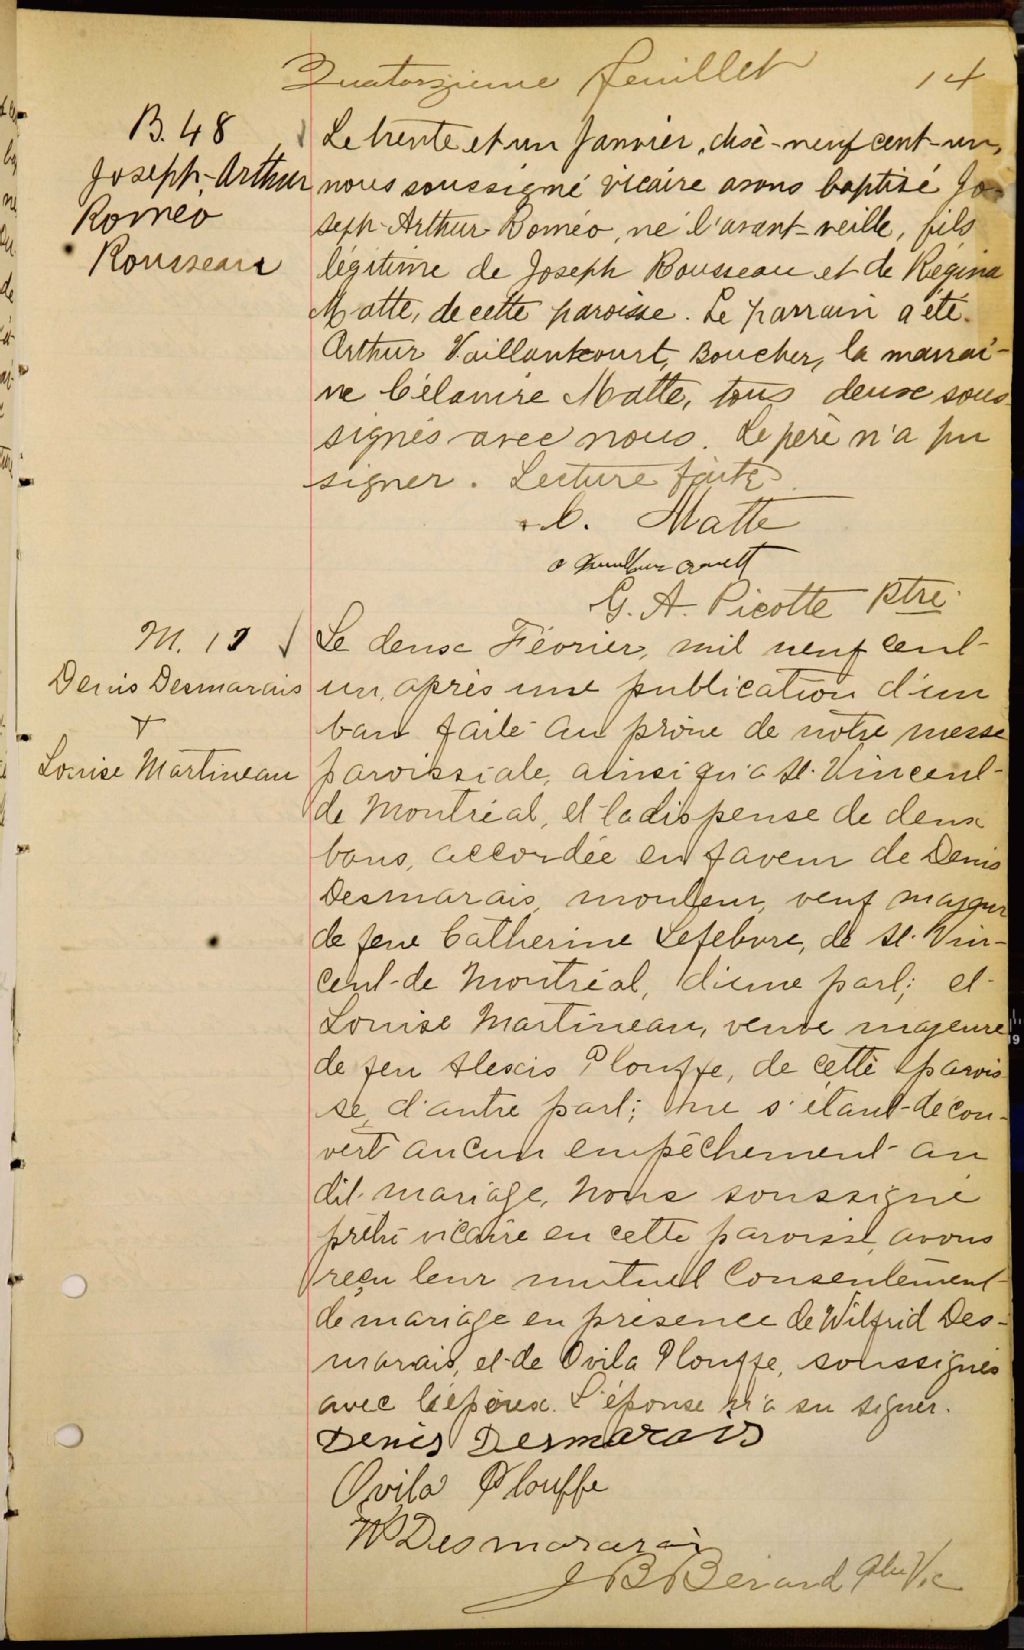 Quatorzieme feuillet 14
B. 48
Joseph-Arthur
Roméo
Rousseau
Le trente et un Janvier, dix-neuf cent-un,
nous soussigné vicaire avons baptisé Jo-
seph-Arthur-Roméo, né l'avant-veille, fils
légitime de Joseph Rousseau et de Régina
Matte, de cette paroisse. Le parrain a été
Arthur Vaillantcourt, Boucher, la marrai-
ne Célanire Matte, tous deux sous-
signés avec nous. Le père n'a pu
signer. Lecture faite.
C. Matte
G. A. Picotte Ptre.
M. 17
Denis Desmarais
+
Louise Martineau
Le deux Février, mil neuf cent-
un, après une publication d'un
ban faite au prône de notre messe
paroissiale, ainsi qu'a St. Vincent-
de Montréal, et la dispense de deux
bans, accordée en faveur de Denis
Desmarais, mouleur, veuf majeur
de feue Catherine Lefebvre, de St. Vin-
cent-de Montréal, d'une part; et
Louise Martineau, veuve majeure
de feu Alexis Plouffe, de cette parois
se, d'autre part; ne s'étant decou-
vert aucun empêchement au
dit mariage, Nous soussigné
prêtre vicaire en cette paroisse, avons
reçu leur mutuel Consentement
de mariage en présence de Wilfrid Des-
marais, et de Ovila Plouffe, soussignés
avec l'époux. L'épouse n'a su signer.
Denis Desmarais
Ovila Plouffe
W Desmararais
J B Bérard Ptre Vic